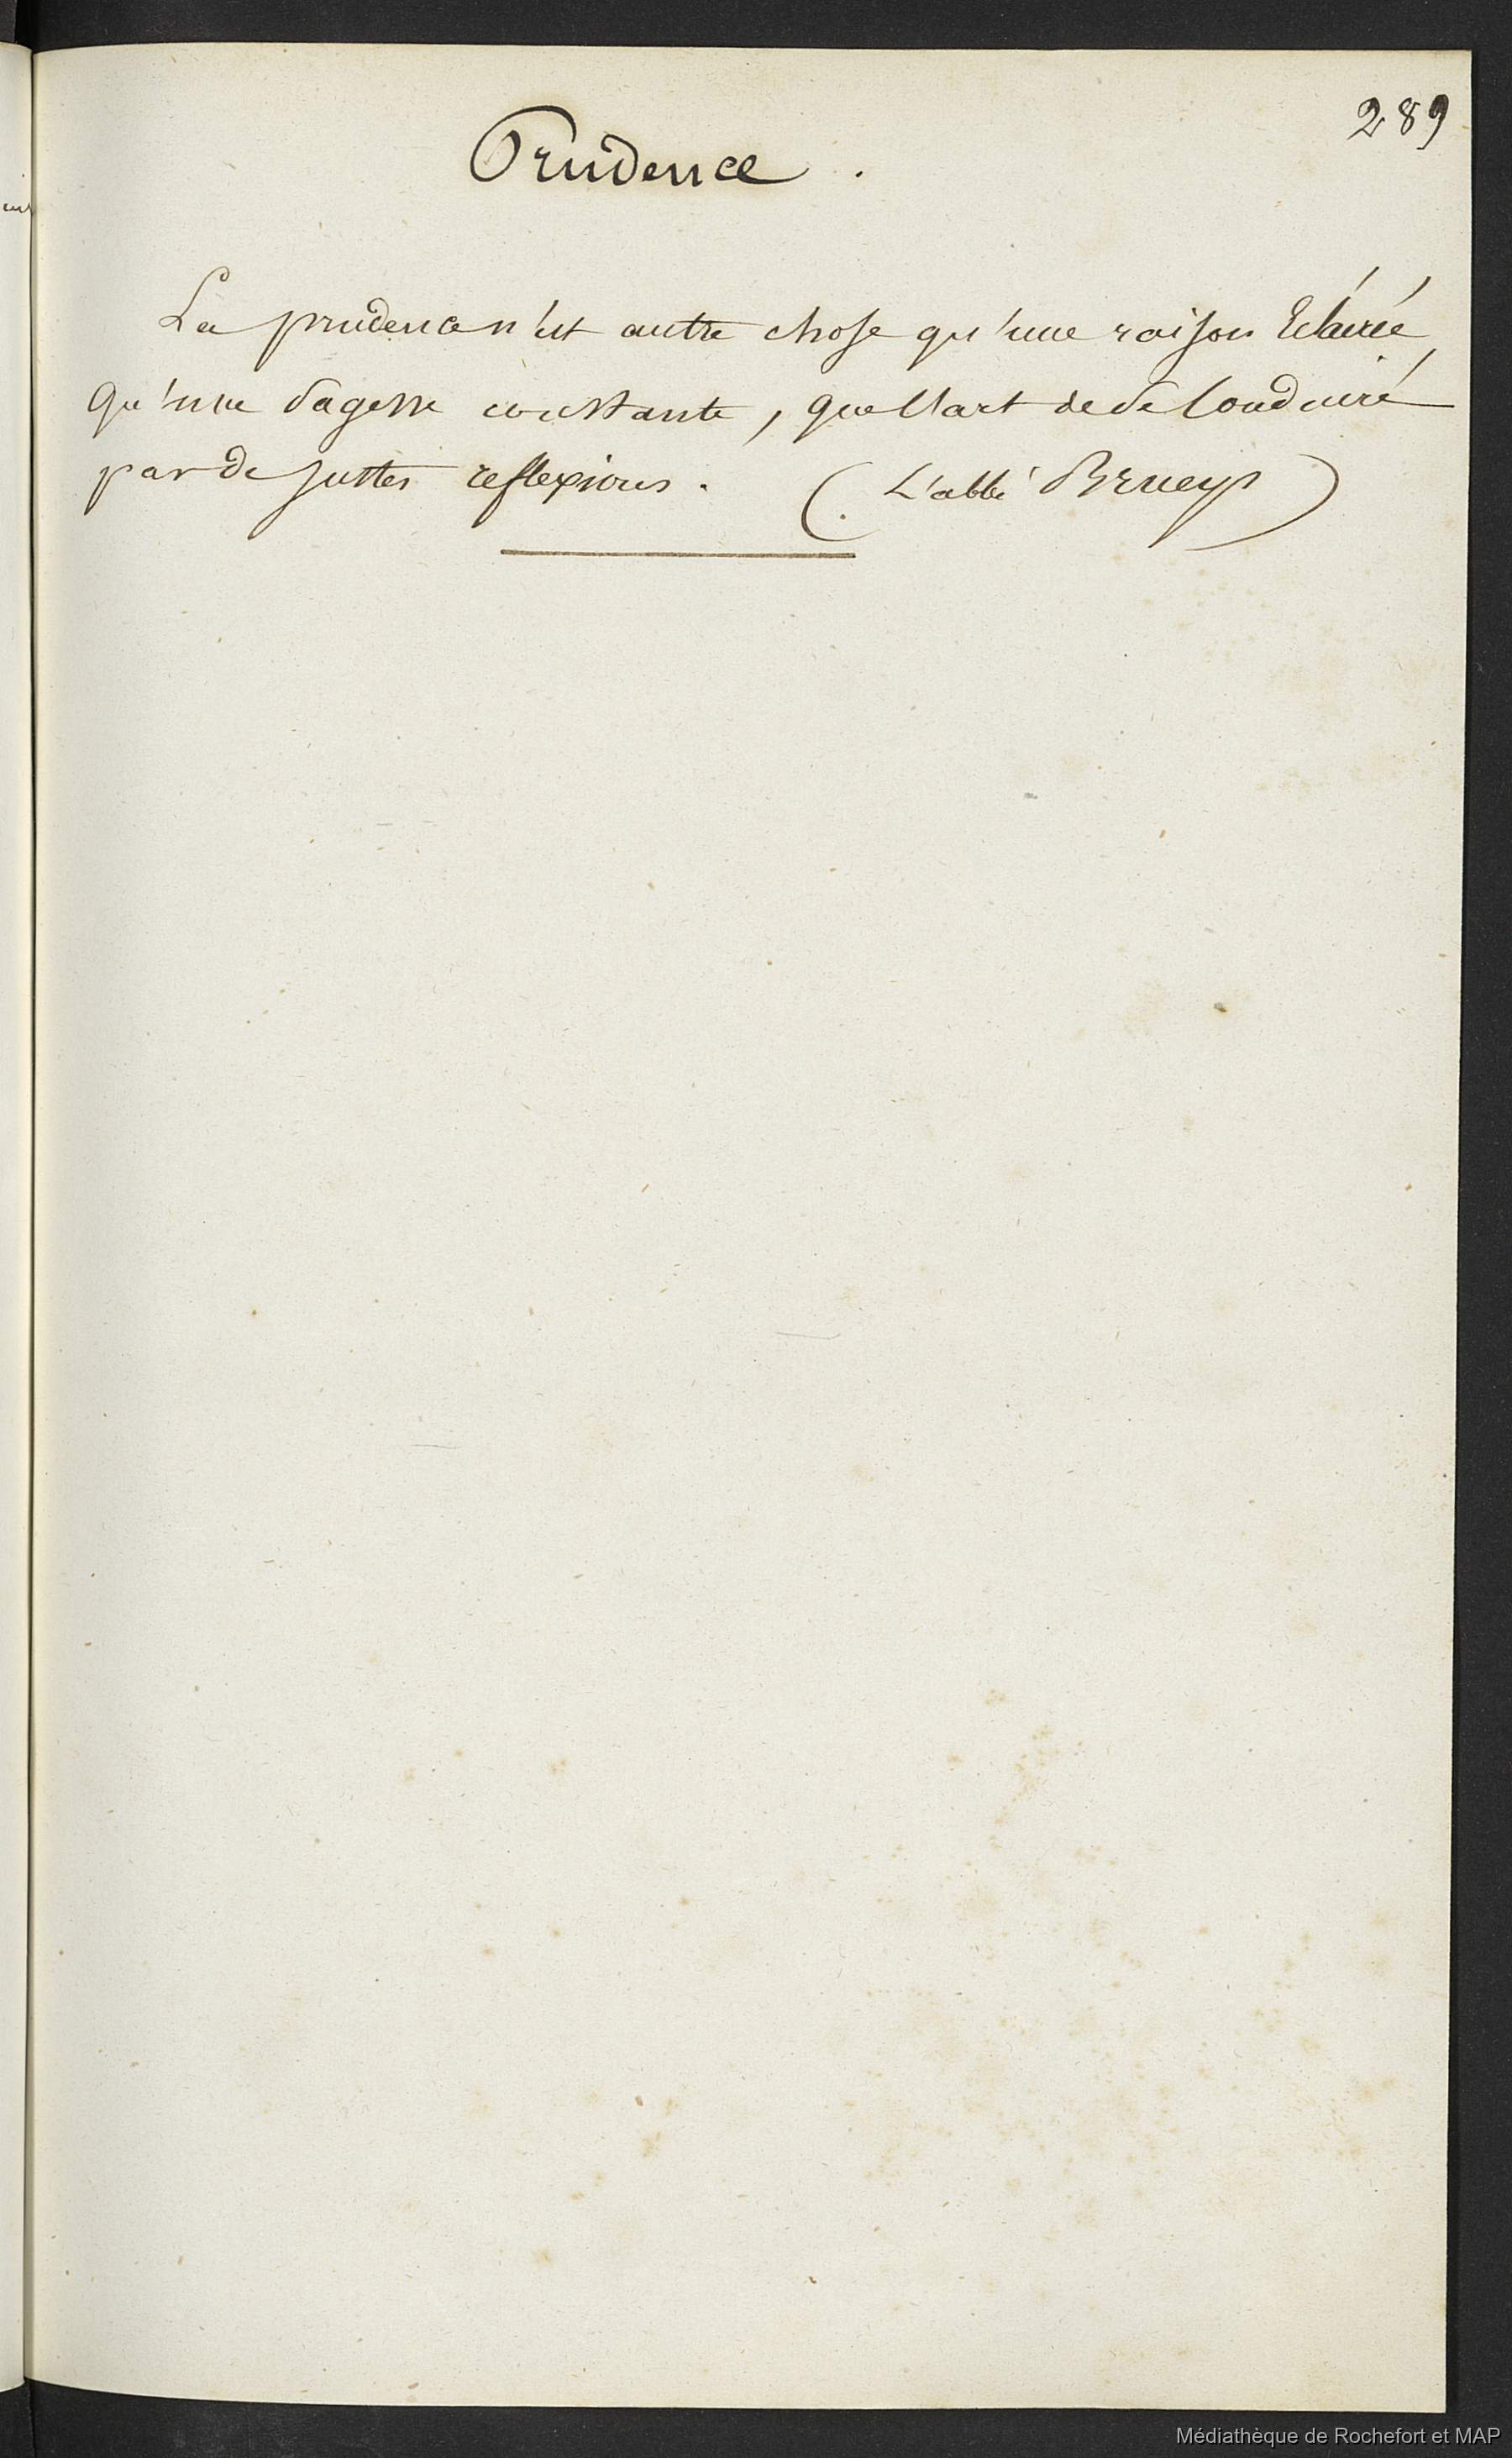 289
Prudence.
La prudence n'est autre chose qu'une raison Eclairée,
Qu'une Sagesse constante, que l'art de Se Conduire
par de Justes reflexions. (L'abbé Brueys)
Médiathèque de Rochefort et MAP